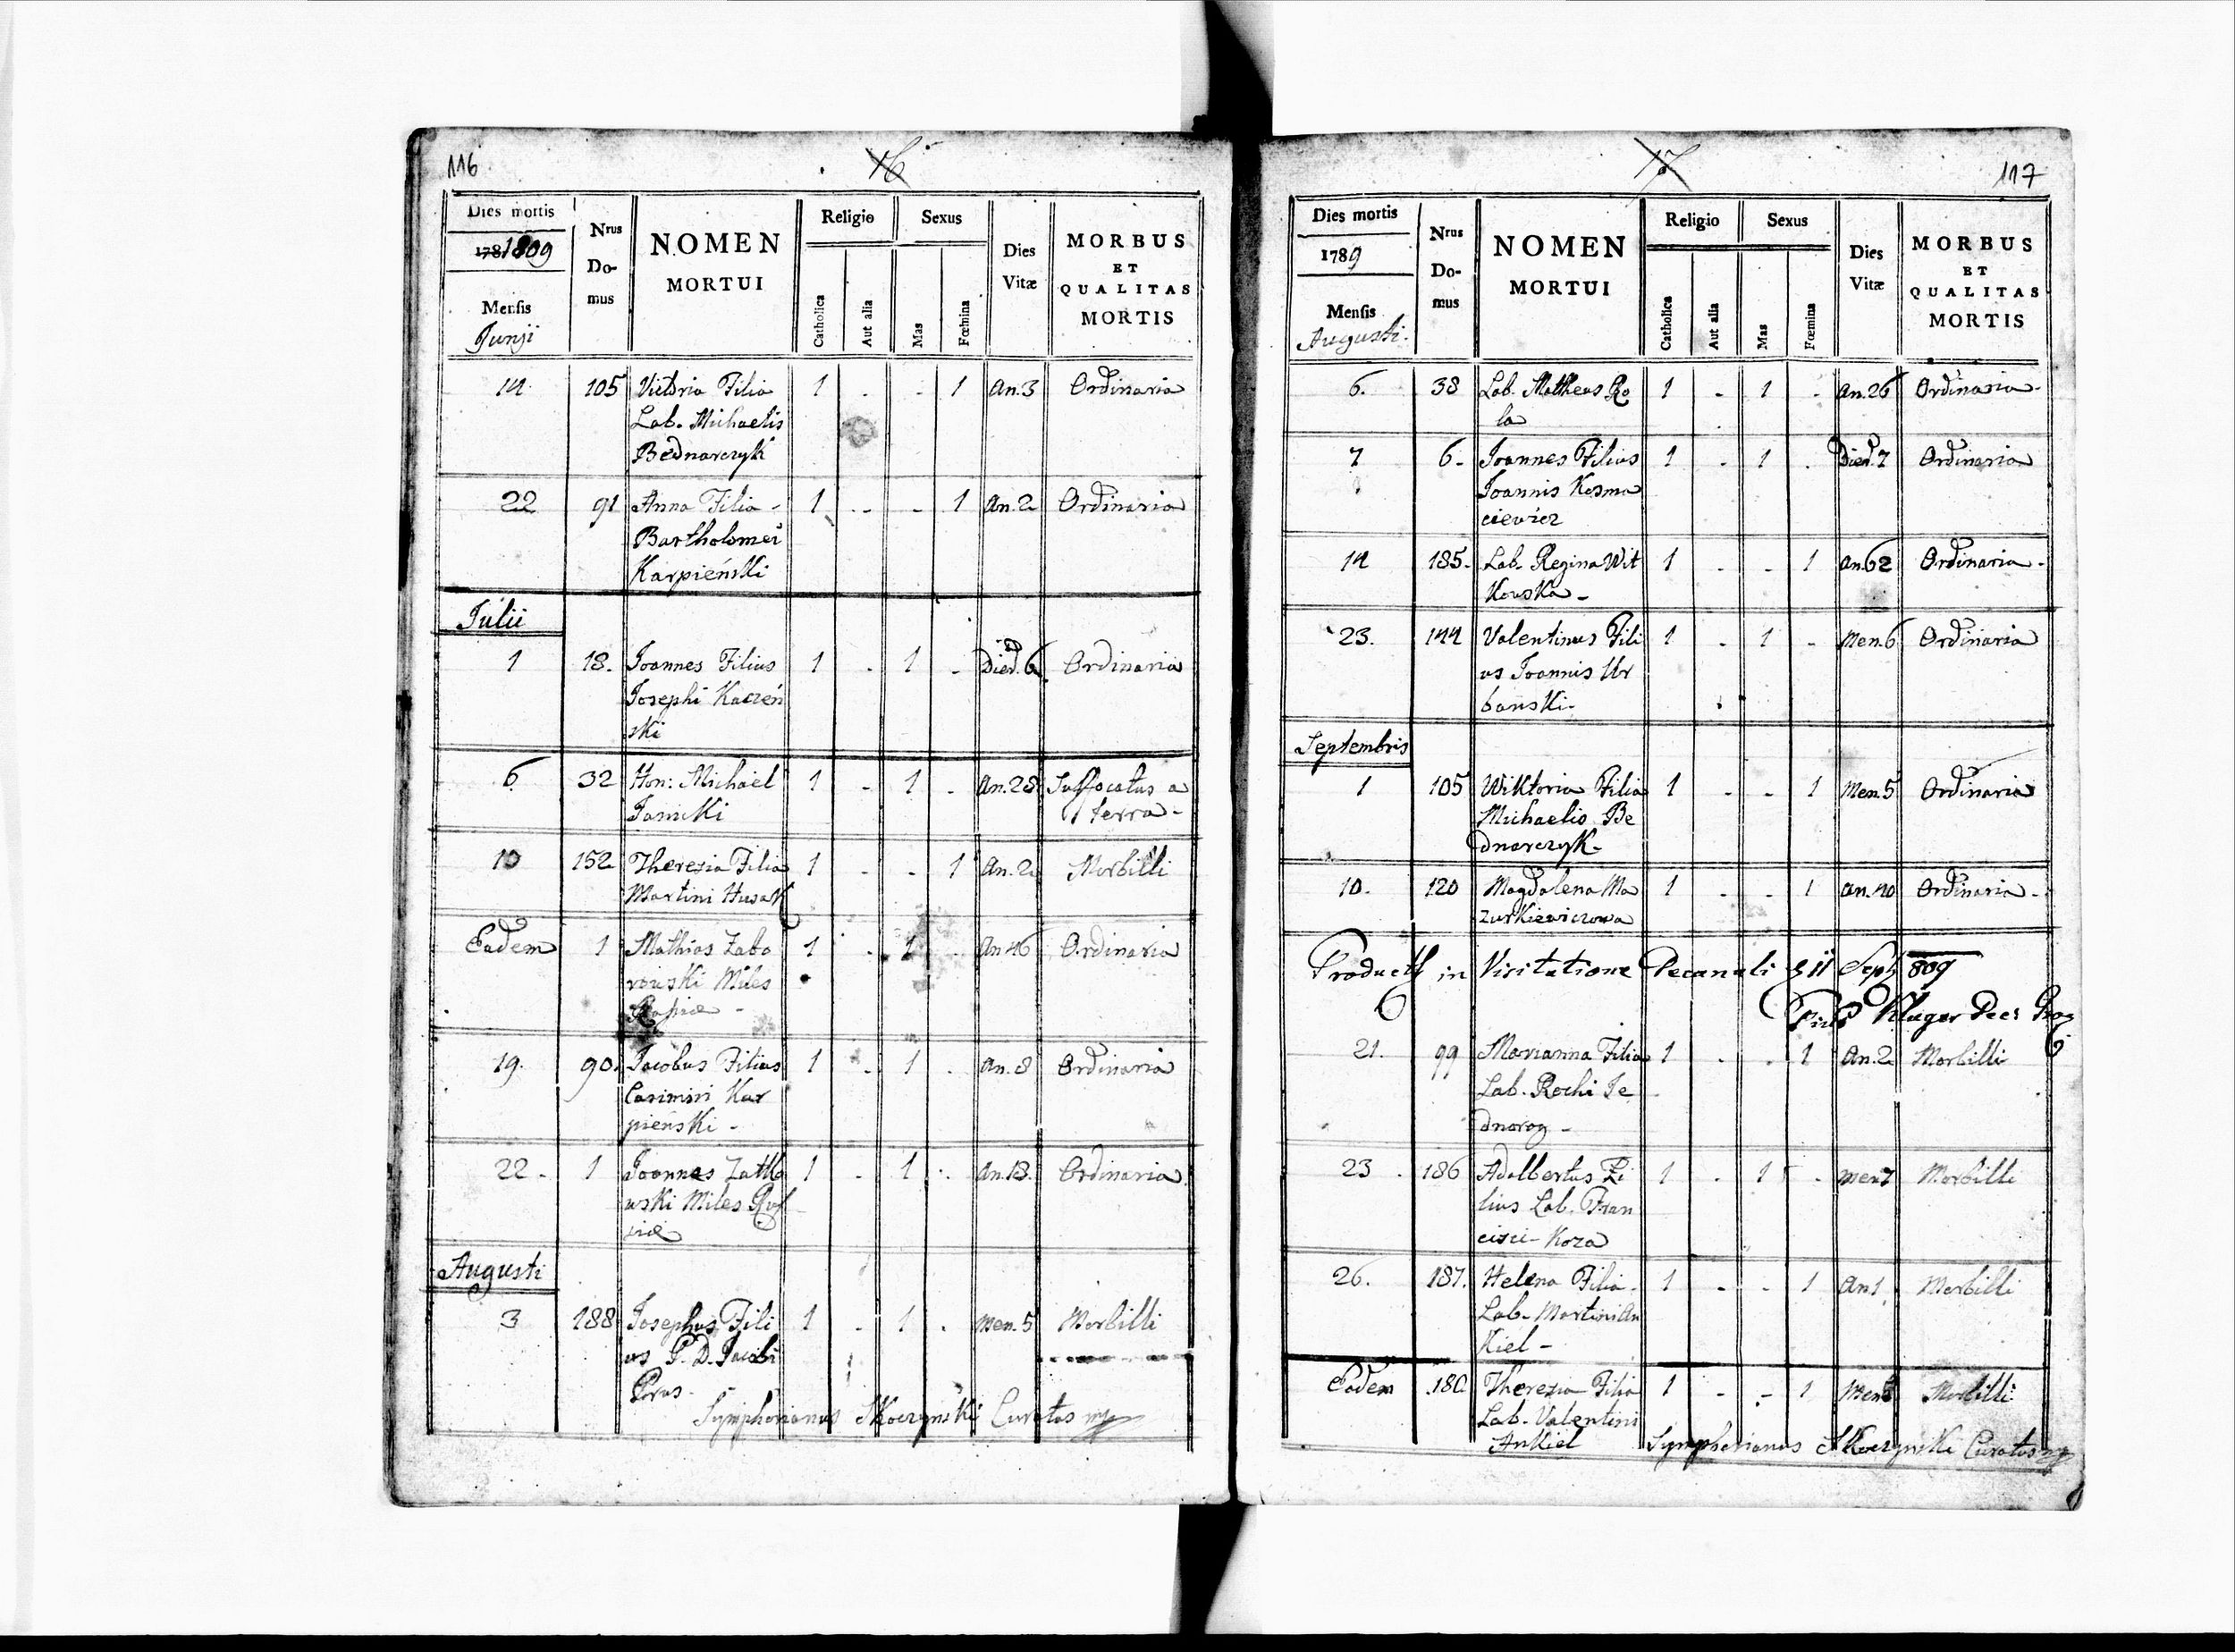 116
16
Dies mortis
1781809
Mensis
Junji
Nrus
Do-
mus
NOMEN
MORTUI
Religio
Catholica
Aut alia
Sexus
Mas
Fœmina
Dies
Vitæ
MORBUS
ET
QUALITAS
MORTIS
14 105 Victoria Filia 1 . - 1 An.3 Ordinaria
Lab. Michaelis
Bednarczyk
22 91 Anna Filia - 1 - - 1 An.2 Ordinaria
Bartholomei
Karpieński
Julii
1 18. Joannes Filius 1 . 1 - Dier.6 Ordinaria
Josephi Kaczeń
ski
6 32 Hon: Michael 1 - 1 - An.28 Suffocatus a
Janicki terra -
10 152 Theresia Filia 1 - - 1 An.2 Morbilli
Martini Husak
Eadem 1 Mathias Zabo 1 - 1 An 46 Ordinaria
rowski Miles
19. 90. Jacobus Filius 1 . 1 . An.8 Ordinaria
Casimiri Kar
pieński -
22 - 1 Joannes 1 - 1 . An.18. Ordinaria
wski Miles Rus
siæ
Augusti
3 188 Josephus Fili 1 - 1 . Men.5 Morbilli
us G. D. Jacobi
Symphorianus Skoczynski Curatus mp
17
117
Dies mortis
1789
Mensis
Augusti.
Nrus
Do-
mus
NOMEN
MORTUI
Religio
Catholica
Aut alia
Sexus
Mas
Fœmina
Dies
Vitæ
MORBUS
ET
QUALITAS
MORTIS
6. 38 Lab. Matheus Ro 1 - 1 - An.26 Ordinaria -
la
7 6- Joannes Filius 1 - 1 . Dier.7 Ordinaria
Joannis Kosma
ciewicz
14 185- Lab. Regina Wit 1 - - 1 An.62 Ordinaria -
Kowska -
23. 144 Valentinus Fili 1 - 1 - Men.6 Ordinaria
us Joannis Ur
banski -
Septembris
1 105 Wiktoria Filia 1 - - 1 Men.5 Ordinaria
Michaelis Be
dnarczyk -
10. 120 Magdalena Ma 1 - - 1 An.40 Ordinaria -
zurkiewiczowa
in Visitatione Decanali 11 Sept 809
Kluger
21. 99 Marianna Filia 1 - - 1 An.2 Morbilli
Lab. Rochi Je
dnorog -
23 . 186 Adalbertus Fi 1 . 1 - Men7 Morbilli
lius Lab. Fran
cisci Koza
26. 187. Helena Filia - 1 - - 1 An1 Morbilli
Lab. Martini An
Kiel -
Eadem 180 Theresia Filia 1 - - 1 Morbilli
Lab. Valentini
Ankiel
Symphorianus Skoczynski Curatus mp